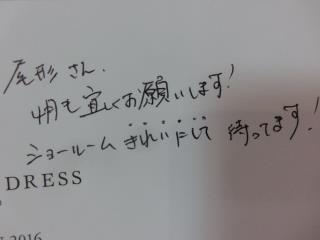 尾形さん.
4月も宜しくお願いします!
ショールームきれいにして待ってます!
DRESS
2016